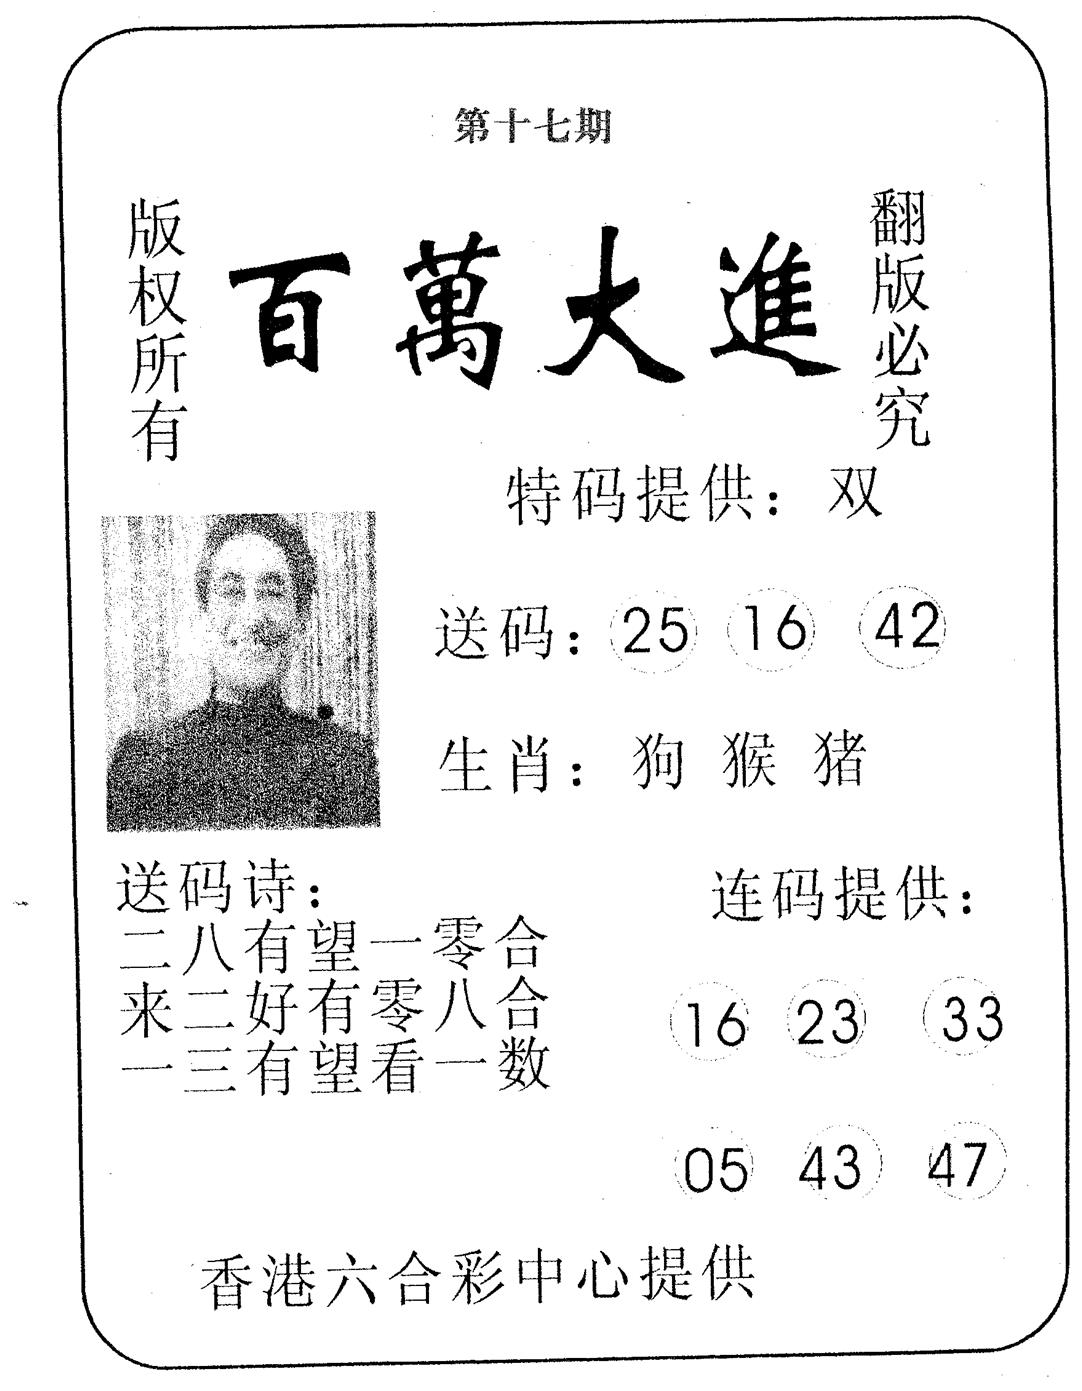 第十七期
版权所有
百萬大進
翻版必究
特码提供：双
送码：25 16 42
生肖：狗 猴 猪
送码诗：
二八有望一零合
来二好有零八合
一三有望看一数
连码提供：
16 23 33
05 43 47
香港六合彩中心提供